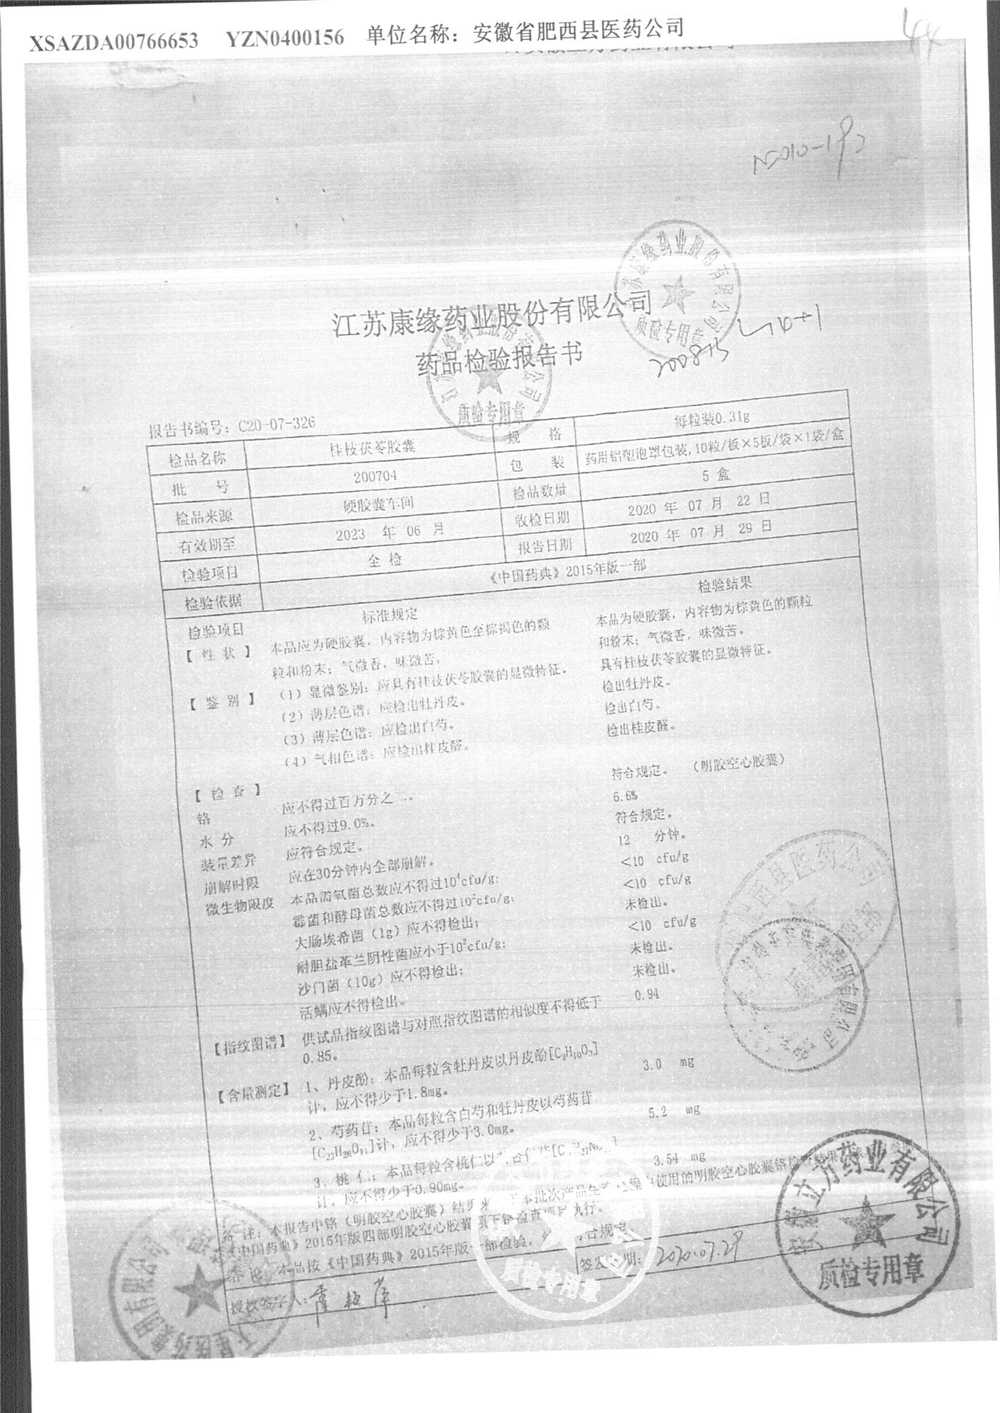 XSAZDA00766653 YZN0400156 单位名称：安徽省肥西县医药公司
江苏康缘药业股份有限公司
药品检验报告书
200815
报告书编号：C20-07-326
检品名称 桂枝茯苓胶囊 规 格 每粒装0.31g
批 号 200704 包 装 药用铝塑泡罩包装,10粒/板×5板/袋×1袋/盒
检品来源 硬胶囊车间 检品数量 5 盒
有效期至 2023 年 06 月 收检日期 2020 年 07 月 22 日
检验项目 全 检 报告日期 2020 年 07 月 29 日
检验依据 《中国药典》2015年版一部
检验项目 标准规定 检验结果
【 性 状 】 本品应为硬胶囊，内容物为棕黄色至棕褐色的颗 本品为硬胶囊，内容物为棕黄色的颗粒
粒和粉末；气微香，味微苦。 和粉末；气微香，味微苦。
【 鉴 别 】 （1）显微鉴别：应具有桂枝茯苓胶囊的显微特征。 具有桂枝茯苓胶囊的显微特征。
（2）薄层色谱：应检出牡丹皮。 检出牡丹皮。
（3）薄层色谱：应检出白芍。 检出白芍。
（4）气相色谱：应检出桂皮醛。 检出桂皮醛。
【 检 查 】
铬 应不得过百万分之二。 符合规定。 （明胶空心胶囊）
水 分 应不得过9.0%。 6.6%
装量差异 应符合规定。 符合规定。
崩解时限 应在30分钟内全部崩解。 12 分钟。
微生物限度 本品需氧菌总数应不得过10⁴cfu/g； <10 cfu/g
霉菌和酵母菌总数应不得过10²cfu/g； <10 cfu/g
大肠埃希菌（1g）应不得检出； 未检出。
耐胆盐革兰阴性菌应小于10²cfu/g； <10 cfu/g
沙门菌（10g）应不得检出； 未检出。
活螨应不得检出。 未检出。
【指纹图谱】 供试品指纹图谱与对照指纹图谱的相似度不得低于 0.94
0.85。
【含量测定】 1、丹皮酚：本品每粒含牡丹皮以丹皮酚[C₉H₁₀O₃] 3.0 mg
计，应不得少于1.8mg。
2、芍药苷：本品每粒含白芍和牡丹皮以芍药苷 5.2 mg
[C₂₃H₂₈O₁₁]计，应不得少于3.0mg。
3、桃仁：本品每粒含桃仁以 3.54 mg
计，应不得少于0.90mg。
备 注：本报告中铬（明胶空心胶囊）结果 本批次产品 使用的明胶空心胶囊铬
《中国药典》2015年版四部明胶空心胶囊项下铬检查
结 论：本品按《中国药典》2015年版一部检验， 符合规定。
授权签字人： 签发日期：2020.07.29
质检专用章
安徽立方药业有限公司
质检专用章